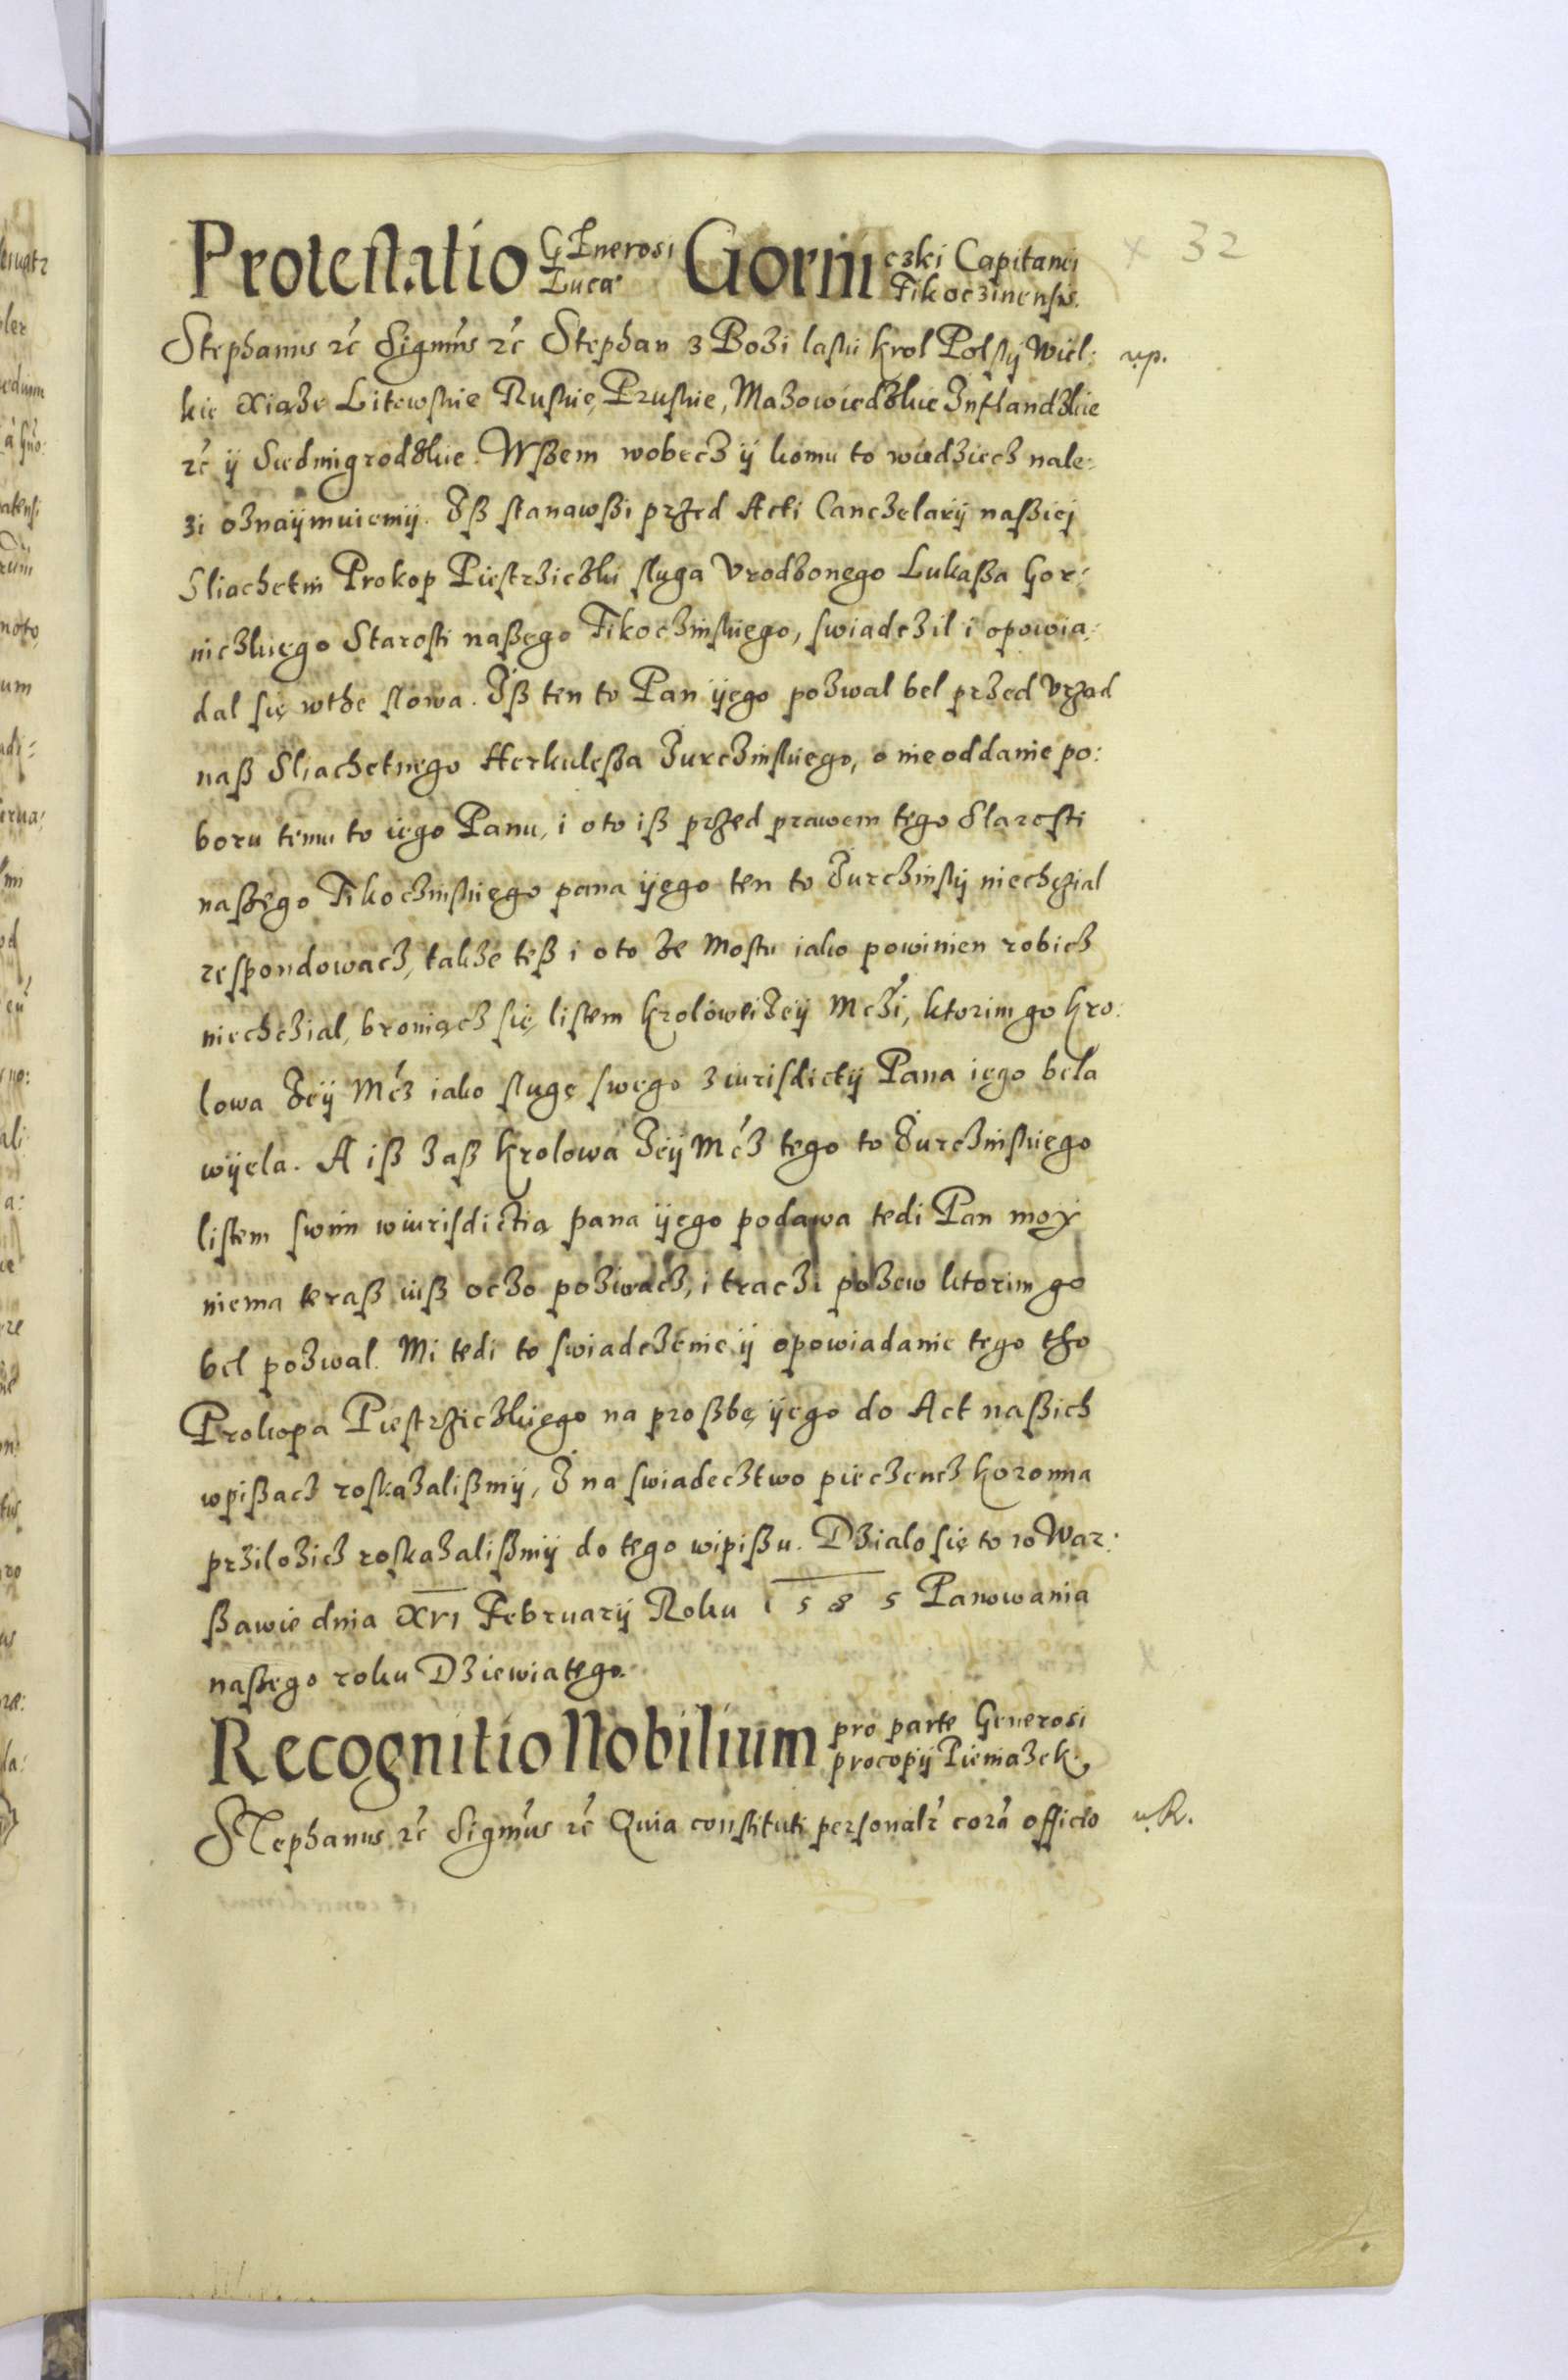 32
Protestatio GEnerosi Gorni czki Capitanei
Lucae Tikoczinensis.
Stephanus rc̃ Signm̃s rc̃ Stephan z Bozi laski Krol Polsky Wiel:
kie Xiąze Litewskie Ruskie, Pruskie, Mazowiedzkie Inflandzkie
rc̃ ÿ Siedmigrodzkie. Wßem wobecz ÿ komu to wiedziecz nale:
zi oznaÿmuiemÿ. Iß stanawßi przed Acti Canczelariÿ naßieÿ
Sliachetni Prokop Piestrziczki sluga Vrodzonego Lukaßa Gor:
niczkiego Starosti naßego Tikoczinskiego, swiadczil i opowia:
dal się wthe slowa. Iß ten to Pan ÿego pozwal bel przed Vrzad
naß Sliachetnego Herkuleßa Iurczinskiego, o nieoddanie po:
boru temu to iego Panu, i oto iß przed prawem tego Starosti
naßego Tikoczinskiego pana ÿego ten to Iurczinskÿ niechczial
respondowacz, takze teß i oto ze mostu iako powinien robicz
niechczial, broniącz się listem Krolowei Ieÿ Mczi, ktorim go Kro:
lowa Ieÿ Mcz iako slugę swego z iurisdictÿ Pana iego bela
wÿela. A iß zaß Krolowa Ieÿ Mcz tego to Iurczinskiego
listem swim wiurisdictią pana ÿego podawa tedi Pan moy
niema teraß iuß oczo poziwacz, i traczi pozew ktorim go
bel pozwal. Mi tedi to swiadczenie ÿ opowiadanie tego tho
Prokopa Piestrziczkiego na proßbę ÿego do Act naßich
wpißacz roskazalißmÿ, I na swiadecztwo pieczencz koronna
prziłozicz roskazalißmÿ do tego wipißu. Dzialo się to w War:
ßawie dnia XVI Februarÿ Roku 1585 Panowania
naßego roku Dziewiatego.
Recognitio Nobilium pro parte Generosi
procopÿ Pieniazek
Stephanus rc̃ Sigm̃us rc̃ Quia constituti personalr̃ corã officio